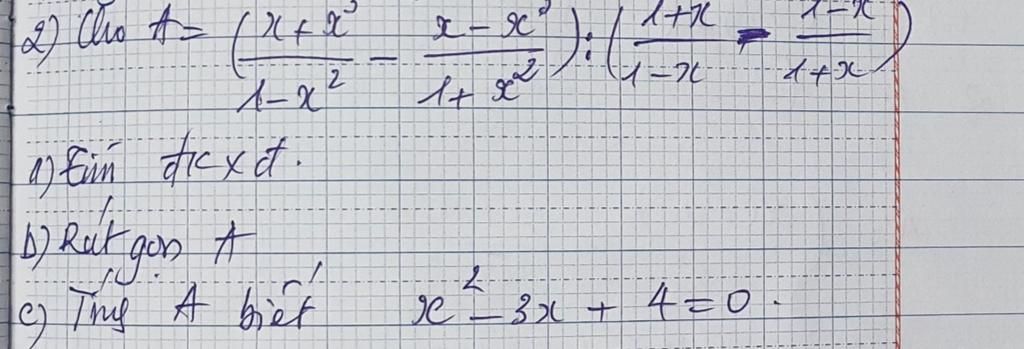 2) Cho A = (x + x³ / 1 - x² - x - x³ / 1 + x²) : (1 + x / 1 - x - 1 - x / 1 + x)
a) Tìm đkxđ.
b) Rút gọn A
c) Tính A biết x² - 3x + 4 = 0.